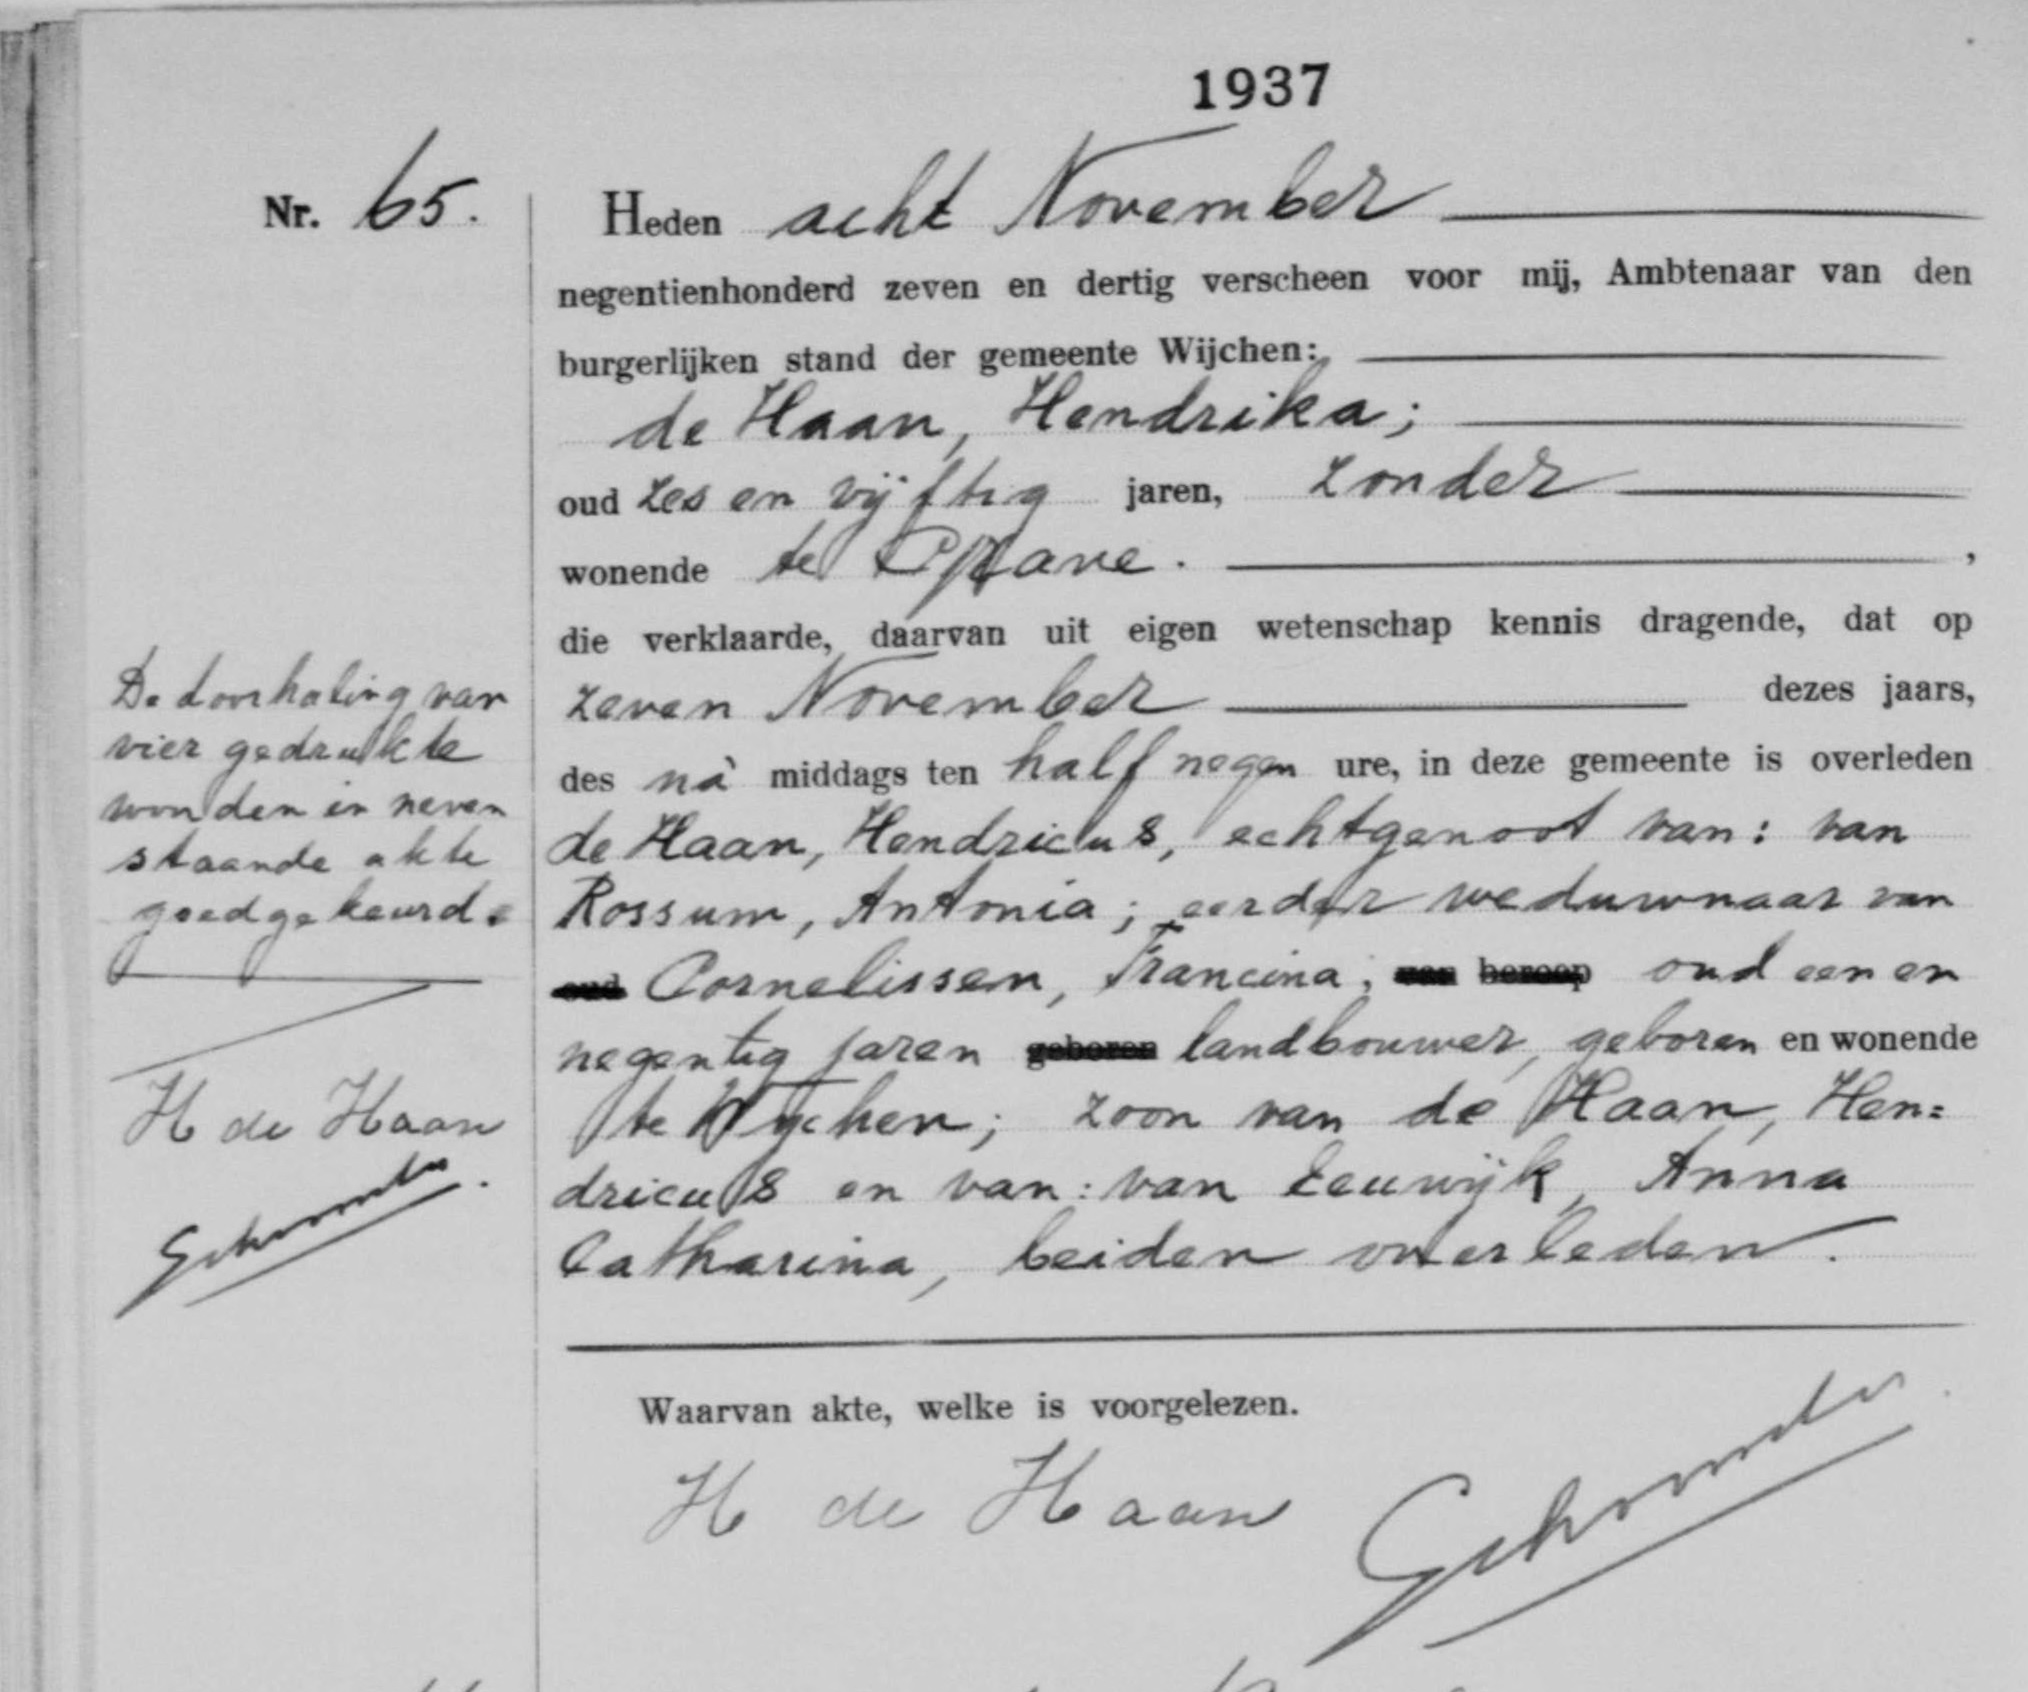 1937
Nr. 65.
Heden acht November
negentienhonderd zeven en dertig verscheen voor mij, Ambtenaar van den
burgerlijken stand der gemeente Wijchen:
de Haan, Hendrika;
oud zes en vijftig jaren, zonder
wonende te Grave. ,
die verklaarde, daarvan uit eigen wetenschap kennis dragende, dat op
zeven November dezes jaars,
des nà middags ten half negen ure, in deze gemeente is overleden
de Haan, Hendricus, echtgenoot van: van
Rossum, Antonia; eerder weduwnaar van
oud Cornelissen, Francina; van beroep oud een en
negentig jaren geboren landbouwer, geboren en wonende
te Wychen; zoon van de Haan, Hen=
dricus en van: van Leeuwijk, Anna
Catharina, beiden overleden.
De doorhaling van
vier gedrukte
woorden in neven
staande akte
goedgekeurd.
H de Haan
Waarvan akte, welke is voorgelezen.
H de Haan